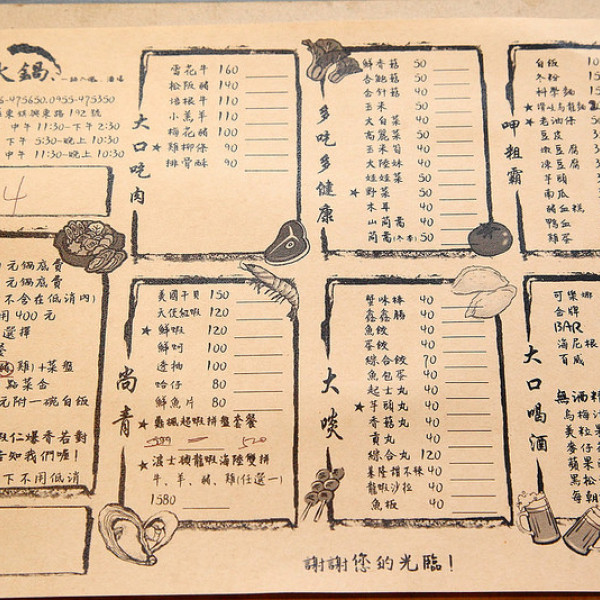 火鍋、
6-475650.0955-475350
東鎮興東路192號
中午11:30-下午2:30
下午5:30-晚上10:30
中午11:30-晚上10:30
4
元鍋底費
元鍋底費
不含在低消內)
用400元
選擇
豬 雞)+菜盤
點菜含
元附一碗白飯
蝦仁爆香若對
告知我們喔!
下不用低消
大口吃肉
雪花牛 160
松阪豬 140
培根牛 110
小羔羊 110
梅花豬 100
★ 雞柳條 90
排骨酥 90
多吃多健康
鮮香菇 50
杏鮑菇 50
金針菇 40
玉米 50
大白菜 40
高麗菜 50
玉米筍 40
大陸妹 40
娃娃菜 50
★ 野菜 50
木耳 40
山茼蒿 40
茼蒿(冬季) 50
呷粗霸
白飯 10
冬粉 15
科學麵 15
★
★ 老油條 50
豆皮
嫩豆腐
凍豆腐
芋頭
南瓜
豬血糕
鴨血
雞蛋
尚青
美國干貝 150
天使紅蝦 120
★ 鮮蝦 120
鮮蚵 100
透抽 100
蛤仔 80
鮮魚片 80
★ 龜楓超蝦拼盤套餐
520
★ 波士頓龍蝦海陸雙拼
牛、羊、豬、雞(任選一)
1580
大啖
蟹味棒 40
鑫鑫腸 40
魚餃 40
蛋餃 40
綜合餃 70
魚包蛋 40
起士丸 40
★ 芋頭丸 40
香菇丸 40
貢丸 40
綜合丸 120
基隆甜不辣 40
龍蝦沙拉 40
魚板 40
大口喝酒
可樂娜
金牌
BAR
海尼根
百威
無酒精
烏梅汁
美粒果
麥仔茶
蘋果
黑松
每朝
謝謝您的光臨!